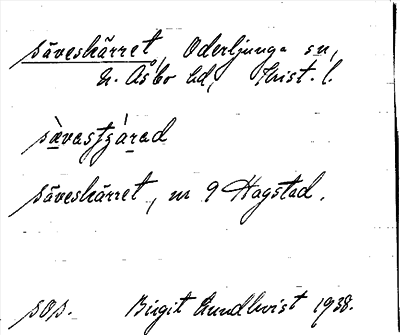 säveskärret, Oderljunga sn,
N. Åsbo hd, Krist. l.
säveskärret, nr 9 Hagstad.
sOs. Birgit Lundkvist 1938.